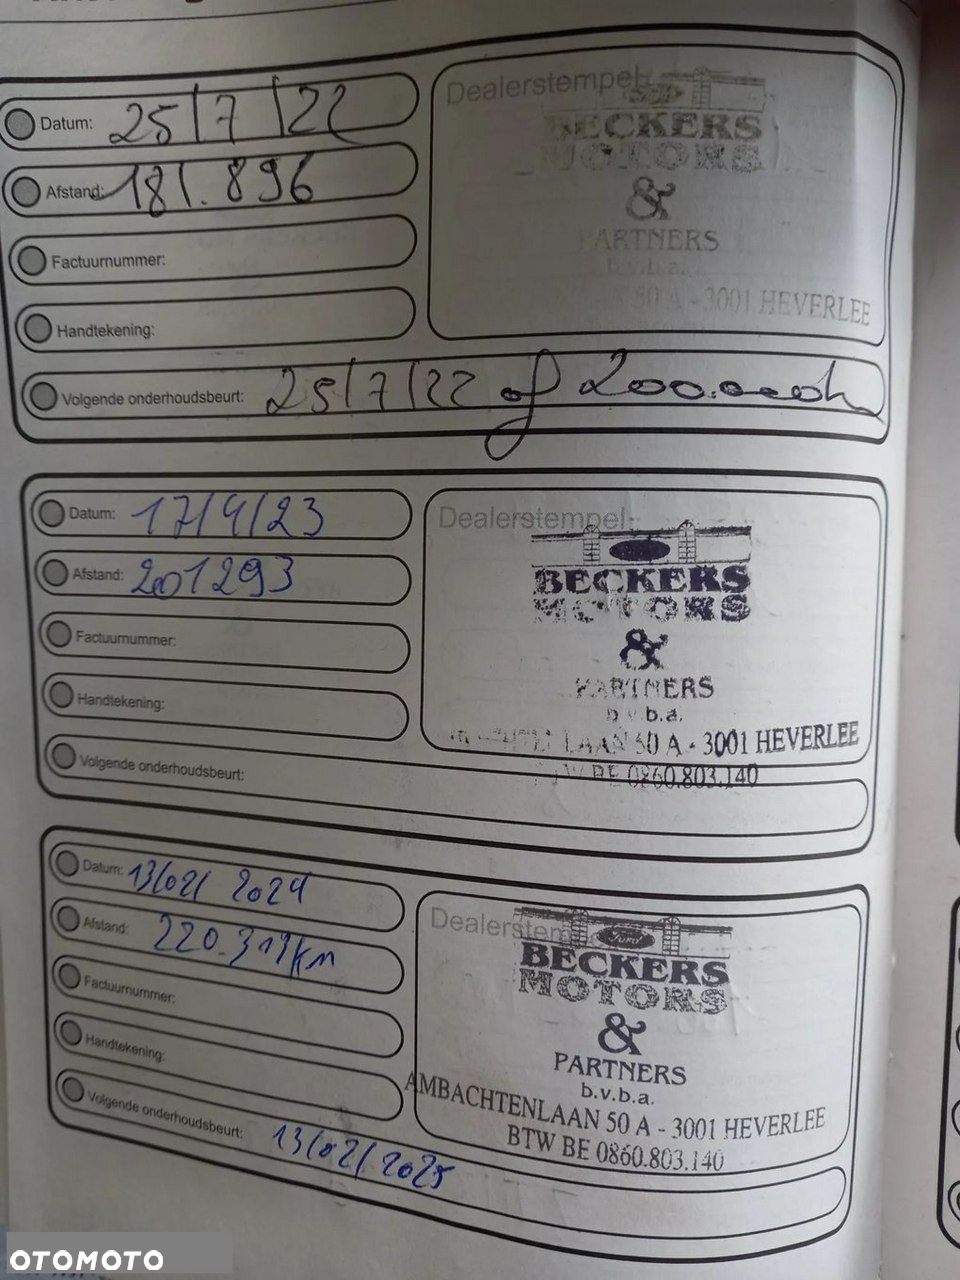 Datum: 25/7/22
Afstand: 181.896
Factuurnummer:
Handtekening:
Volgende onderhoudsbeurt: 25/7/22 of 200.000
Dealerstempel:
BECKERS
MOTORS
&
PARTNERS
b.v.b.a.
50 A - 3001 HEVERLEE
Datum: 17/4/23
Afstand: 201293
Factuurnummer:
Handtekening:
Volgende onderhoudsbeurt:
Dealerstempel:
BECKERS
MOTORS
&
PARTNERS
b.v.b.a.
LAAN 50 A - 3001 HEVERLEE
BTW BE 0860.803.140
Datum: 13/02/2024
Afstand: 220.319km
Factuurnummer:
Handtekening:
Volgende onderhoudsbeurt: 13/02/2025
Dealerstempel
Ford
BECKERS
MOTORS
&
PARTNERS
b.v.b.a.
AMBACHTENLAAN 50 A - 3001 HEVERLEE
BTW BE 0860.803.140
OTOMOTO